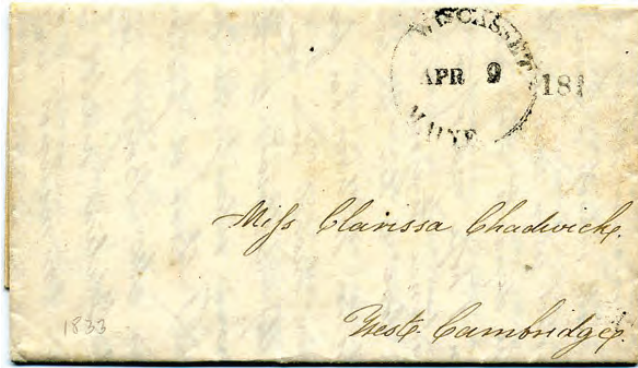 WISCASSET
APR 9
MAINE
18¾
Miss Clarissa Chadwick.
West Cambridge.
1833